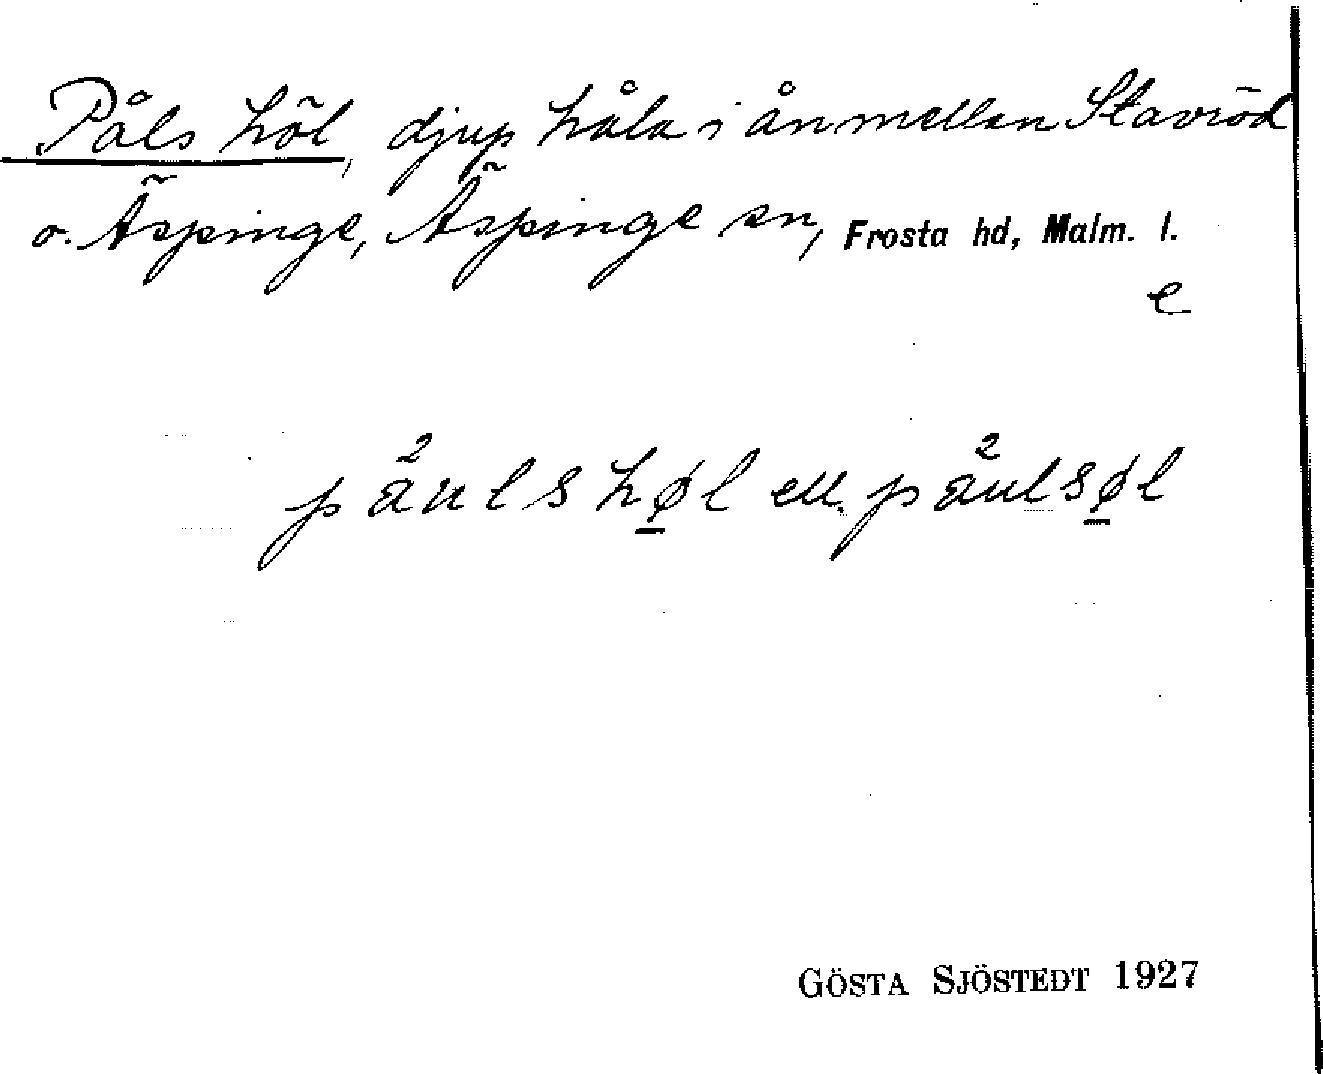 Påls höl, djup håla i ån mellan Stavröd
o. Äspinge, Äspinge sn, Frosta hd, Malm. l.
e
2 2
påulshøl ell. påulsøl
GÖSTA SJÖSTEDT 1927